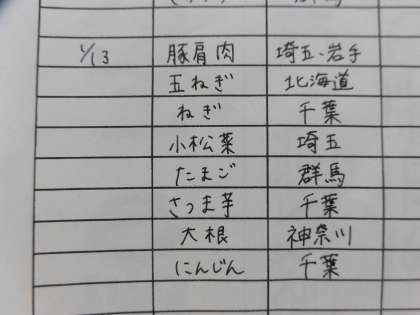 1/13 豚肩肉 埼玉・岩手
玉ねぎ 北海道
ねぎ 千葉
小松菜 埼玉
たまご 群馬
さつま芋 千葉
大根 神奈川
にんじん 千葉